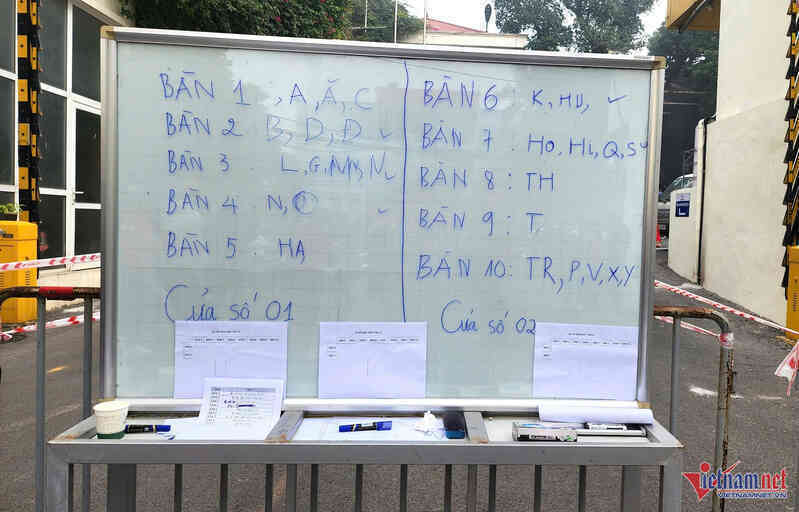 BÀN 1 : A, Ă, C
BÀN 2 B, D, Đ ✓
BÀN 3 : L, G,
BÀN 4 : N, ✓
BÀN 5 : HẠ
Cửa số 01
BÀN 6 : K, HU, ✓
BÀN 7 : HO, HI, Q, S
BÀN 8 : TH
BÀN 9 : T
BÀN 10 : TR, P, V, X, Y
Cửa số 02
L
Vietnam.net
VIETNAMNET.VN